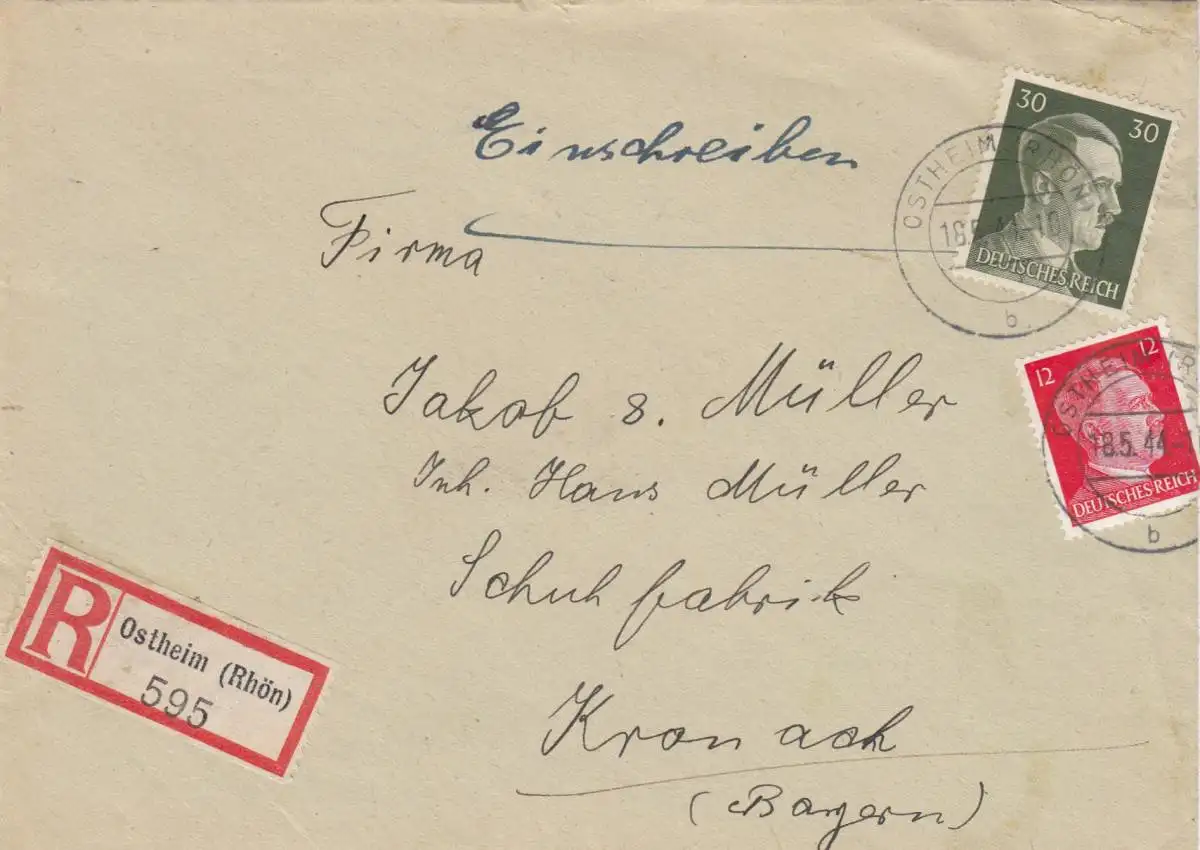 Einschreiben
Firma
Jakob S. Müller
Inh. Hans Müller
Schuhfabrik
Kronach
(Bayern)
30 30
DEUTSCHES REICH
OSTHEIM (RHÖN)
18.5.44-10
b
12 12
DEUTSCHES REICH
OSTHEIM (R
18.5.44-1
b
R
Ostheim (Rhön)
595